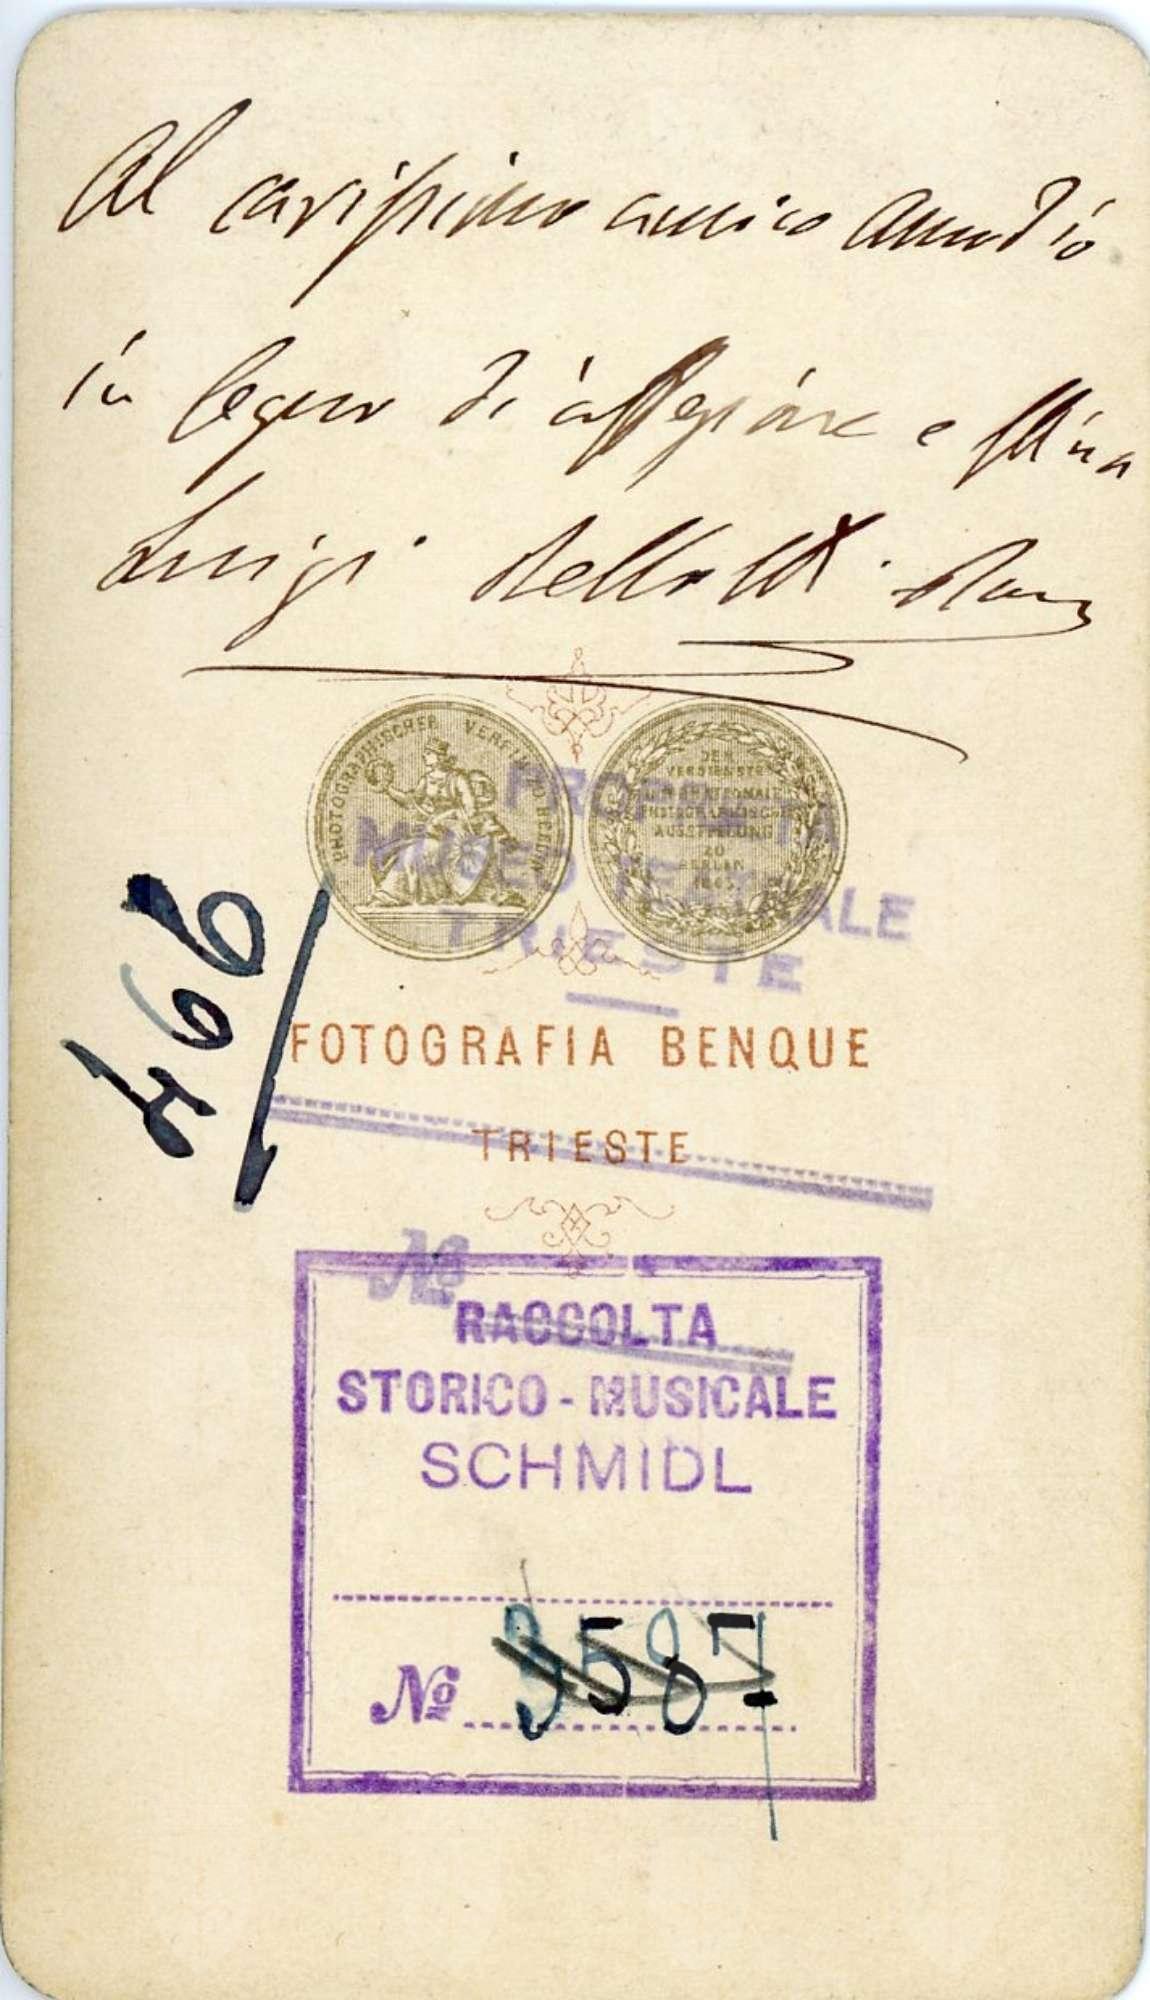 Al carissimo amico Amodio
in segno di affezione e stima
Luigi Bellotti Bon
PHOTOGRAPHISCHER VEREIN ZU BERLIN
DEM
VERDIENSTE
INTERNATIONALE
PHOTOGRAPHISCHE
AUSSTELLUNG
ZU
BERLIN
1865
PROPRIETÀ
MUSEO TEATRALE
TRIESTE
466
FOTOGRAFIA BENQUE
TRIESTE
No
RACCOLTA
STORICO-MUSICALE
SCHMIDL
No 3587